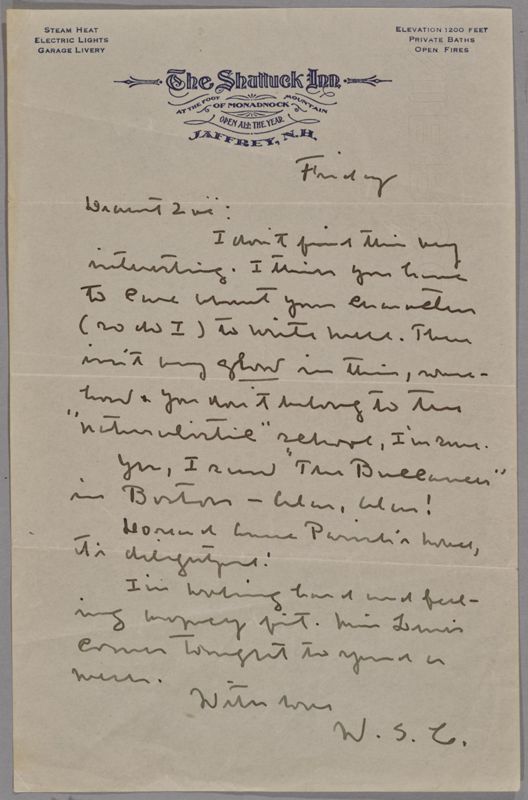 STEAM HEAT
ELECTRIC LIGHTS
GARAGE LIVERY
ELEVATION 1200 FEET
PRIVATE BATHS
OPEN FIRES
The Shattuck Inn
AT THE FOOT OF MONADNOCK MOUNTAIN
OPEN ALL THE YEAR
JAFFREY, N.H.
Friday
Dearest Zoë:
I don't find this very
interesting. I think you have
to care about your characters
(so do I) to write well. There
isn't any glow in this, some-
how & you don't belong to the
"naturalistic" school, I'm sure.
Yes, I read "The Buccaneers"
in Boston – alas, alas!
Do read Anne Parrish's novel,
it's delightful!
I'm working hard and feel-
ing mighty fit. Miss Lewis
comes tonight to spend a
week.
With love
W. S. C.